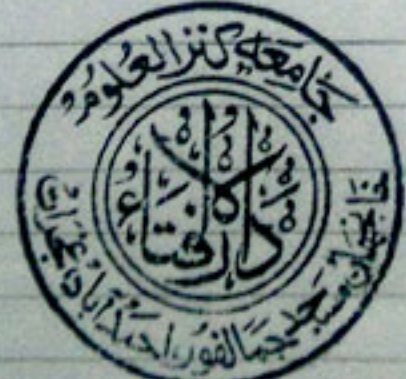 جامعہ کنز العلوم
دار الافتاء
مسجد جمالفور احمدآباد گجرات